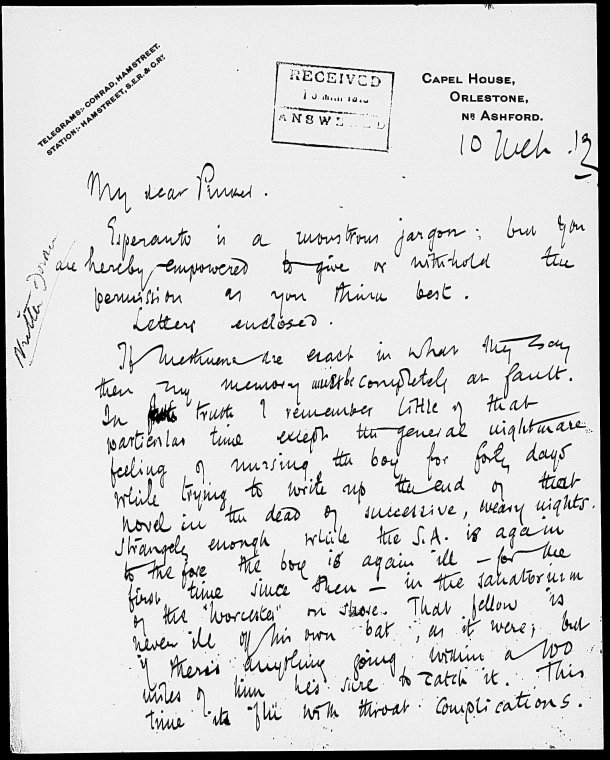 TELEGRAMS:- CONRAD, HAMSTREET.
STATION:- HAMSTREET, S.E.R. & C.RY.
RECEIVED
ANSWERED
CAPEL HOUSE,
ORLESTONE,
NR ASHFORD.
10 Mch .13
My dear Pinker.
Esperanto is a monstrous jargon; but you
are hereby empowered to give or withhold the
permission as you think best.
Letters enclosed.
If Methuens are exact in what they say
then my memory must be completely at fault.
In truth I remember little of that
particular time except the general nightmare
feeling of nursing the boy for forty days
while trying to write up the end of that
novel in the dead of successive, weary nights.
Strangely enough while the S.A. is again
to the fore the boy is again ill – for the
first time since then – in the sanatorium
of the "Worcester" on shore. That fellow is
never ill off his own bat, as it were; but
if there's anything going within a 100
miles of him he's sure to catch it. This
time its 'flu with throat complications.